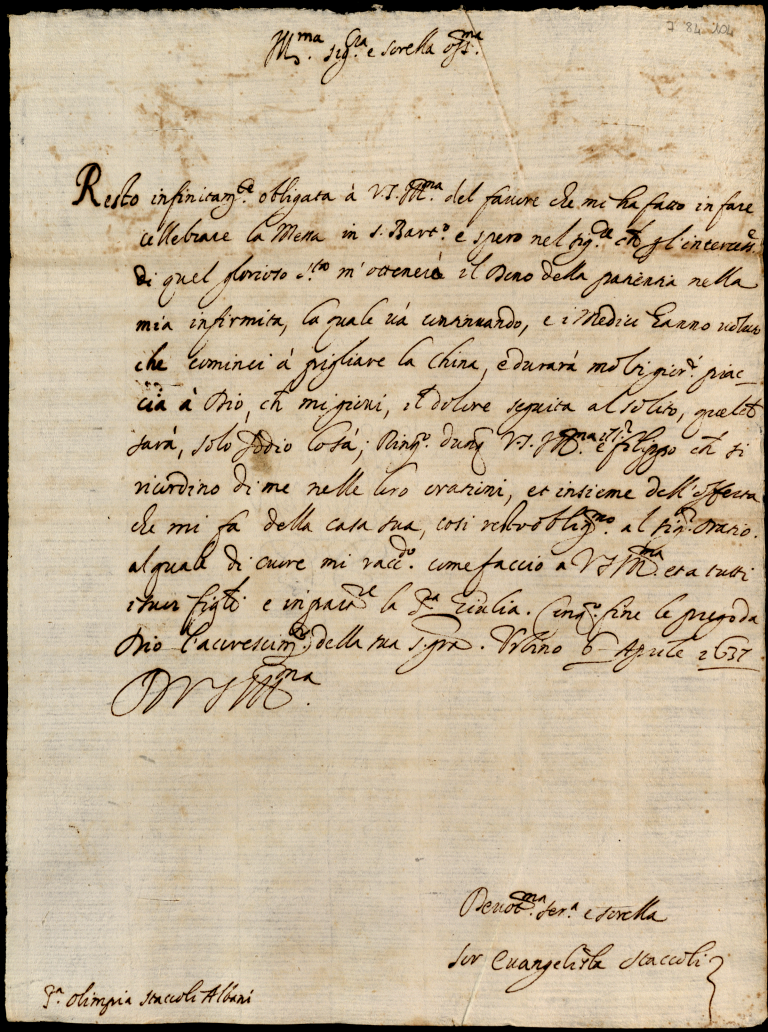 7 84 204
Ill.ma sig.ra e sorella oss.ma
Resto infinitam.te obligata à V.S. Ill.ma del favore che mi ha fatto in fare
cellebrare la Messa in S. Bart.o e spero nel sig.re ch gl'intercess.e
di quel glorioso s.to m'ottenerà il dono della patienza nella
mia infirmita, la quale và continuando, e i Medici hanno
che cominci à pigliare la China, e durarà molti gior.i piac-
cia à Dio, ch mi giovi, il dolore seguita al solito, quel ch
sarà, solo Iddio lo sà; Ring.o dunq V.S. Ill.ma e il s.r Filippo ch si
ricordino di me nelle loro orationi, et insieme dell'offerta
che mi fa della casa sua, così resto oblig.mo al sig.r Oratio.
al quale di cuore mi racc.do come faccio a V S Ill.ma et a tutti
i suoi figli e in par.re la S.ra Giulia. Con q.o fine le prego da
Dio l'accrescim.to della sua s.gra. Urbino 6 Aprile 1637
D V S Ill.ma
Devot.ma ser.a e sorella
Sor Evangelista Staccoli
S.ra Olimpia Staccoli Albani